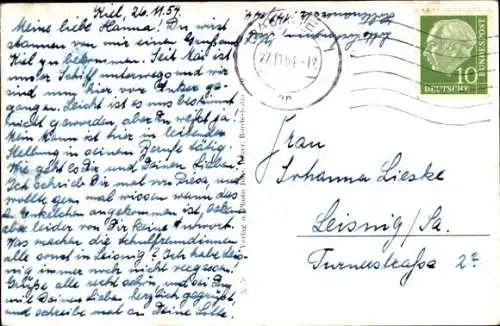 Kiel, 26.11.54.
Meine liebe Hanna! Du wirst
staunen von mir einen Gruß aus
Kiel zu bekommen. Seit Mai ist
unser Schiff unterwegs und wir
sind nun hier vor Anker ge-
gangen. Leicht ist es uns bestimmt
nicht geworden, aber Du weißt ja!
Mein Mann ist hier in leitender
Stellung in seinem Berufe tätig.
Wie geht es Dir und Deinen Lieben?
Ich schrieb Dir mal von Riesa, und
wollte gern mal wissen wann das
Enkelchen angekommen ist,
aber leider von Dir keine Antwort.
Was machen die Schulfreundinnen
alle sonst in Leisnig? Ich habe Leis-
nig immer noch nicht vergessen!
Grüße alle recht schön, und sei Du
mit Deinen Lieben herzlich gegrüßt,
und schreibe mal an Deine Lotte.
27.11.54.-12
10
DEUTSCHE
BUNDESPOST
Frau
Johanna Lieske
Leisnig/Sa.
Turnerstraße 2